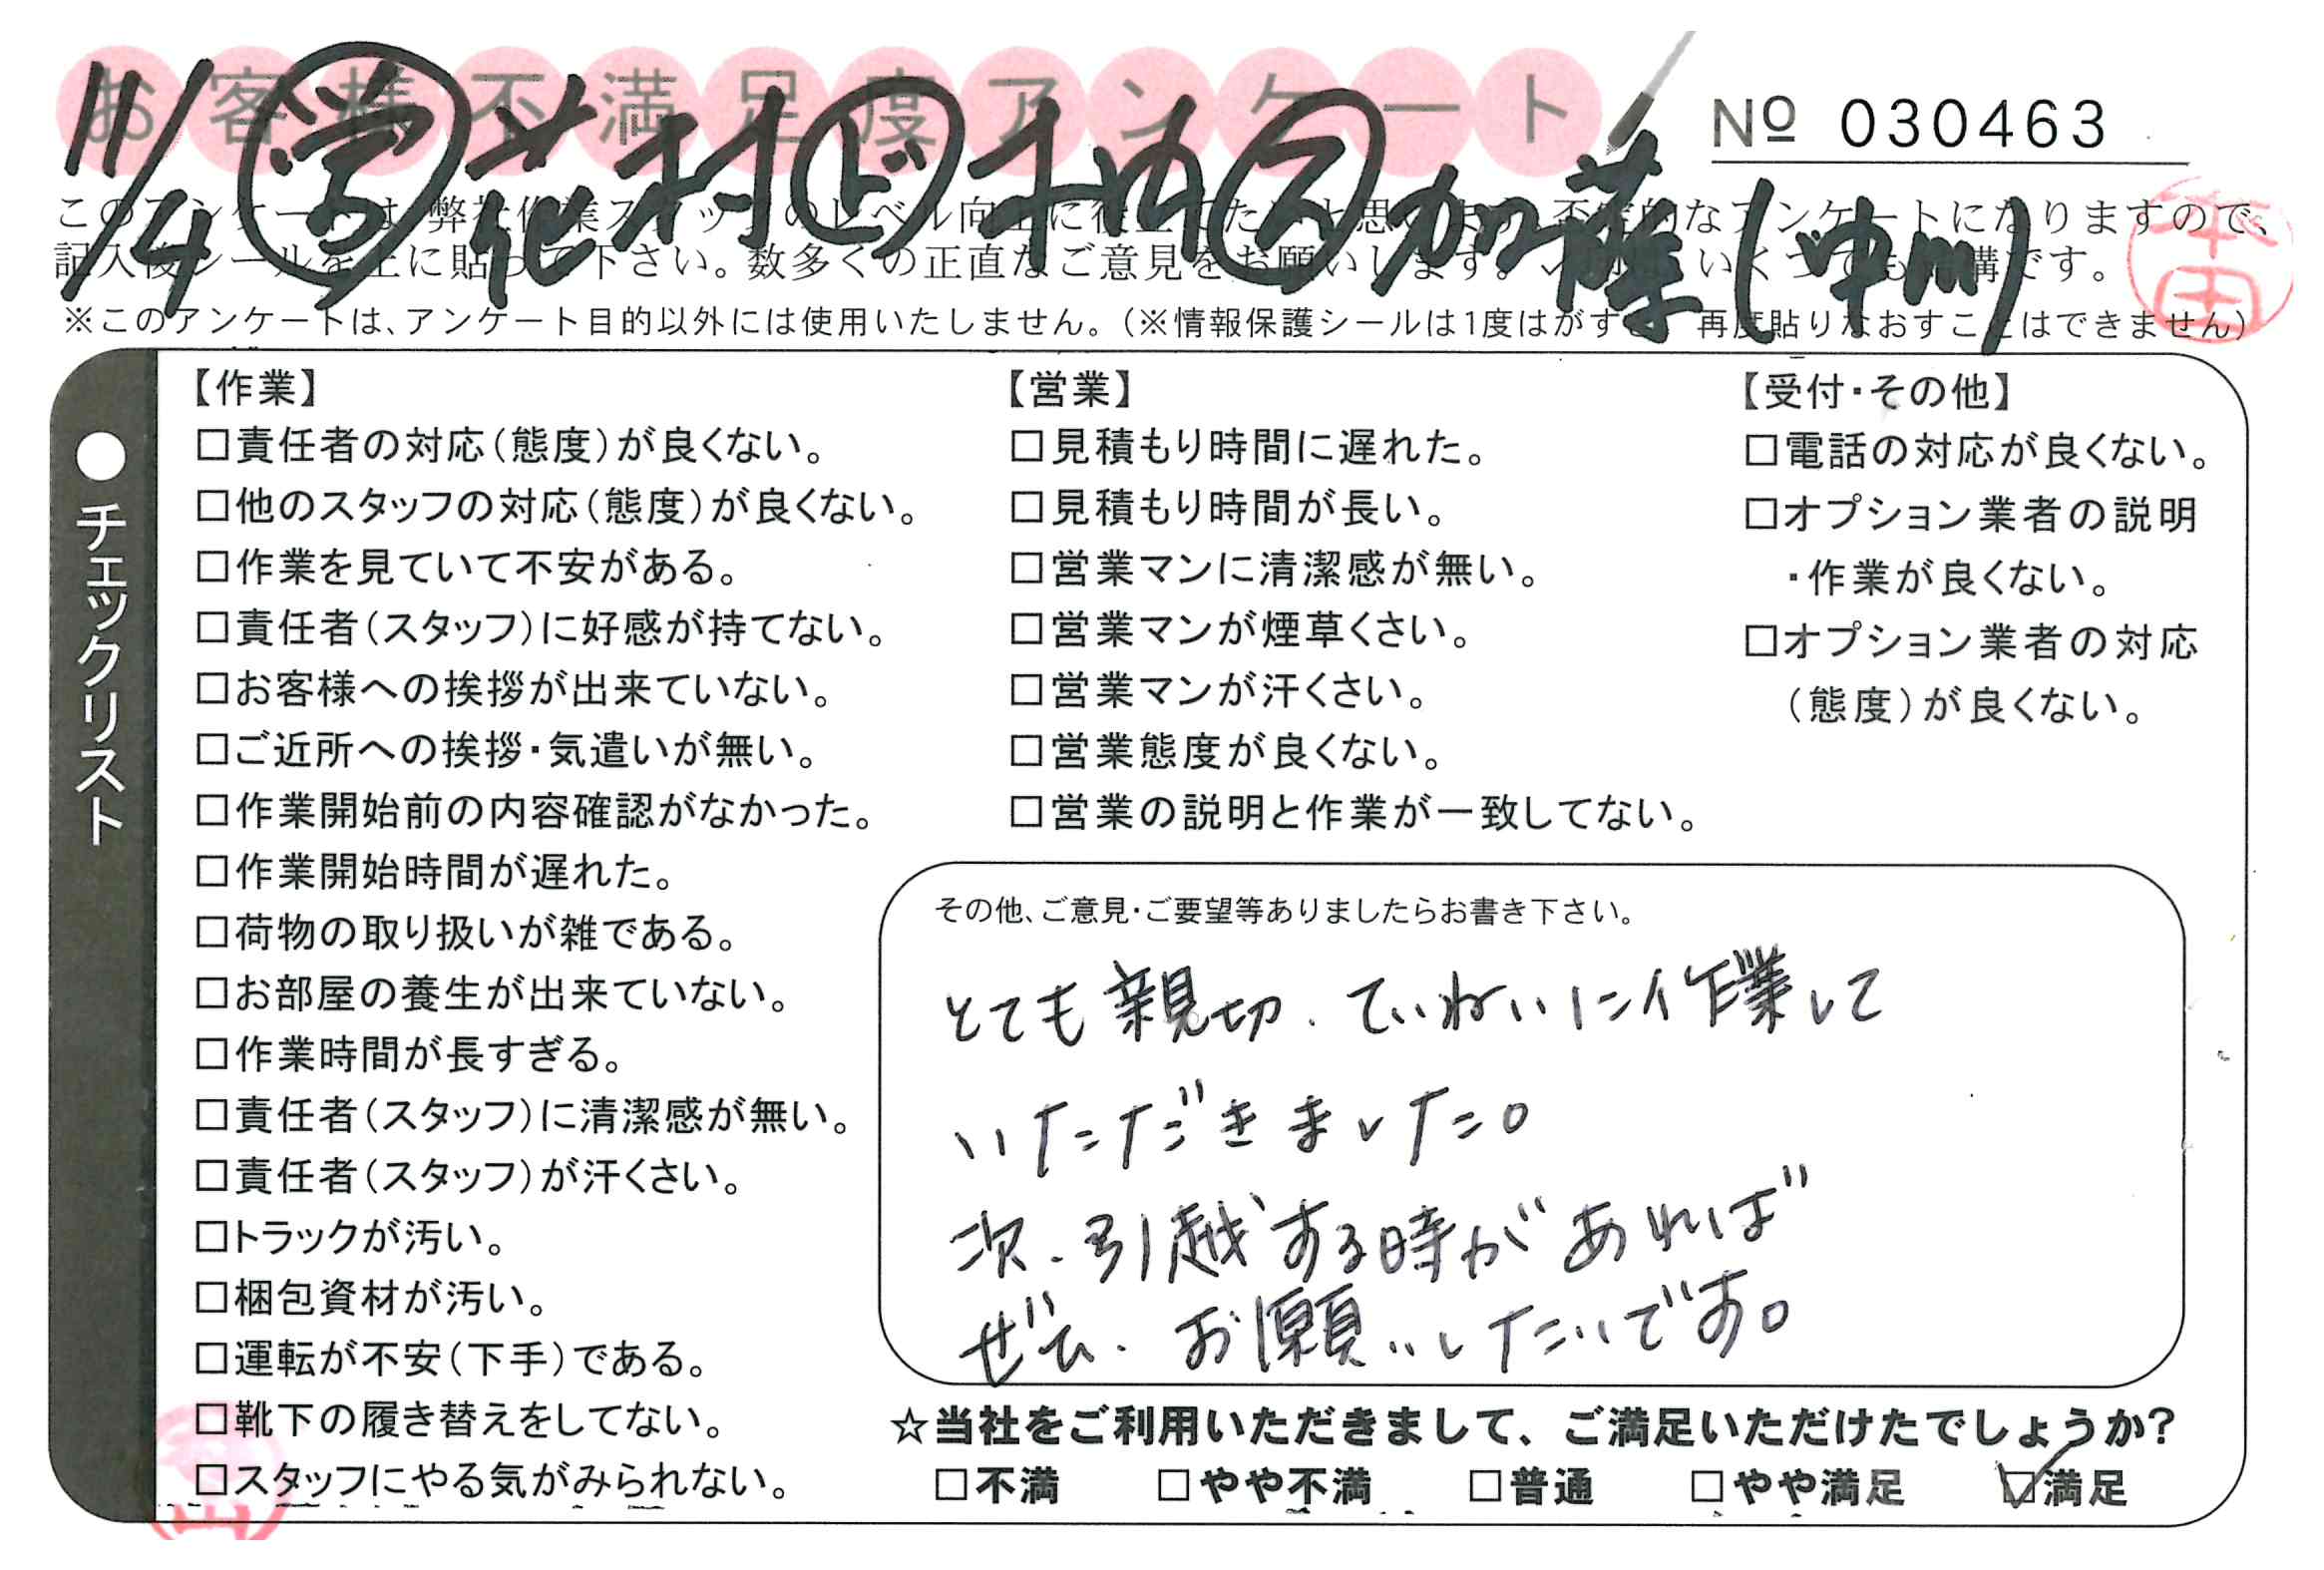 お客様不満足度アンケート
№ 030463
11/4 労 花村 ド 千畑 ス 加藤(中川)
このアンケートは、弊社作業スタッフのレベル向上に役立てたいと思います。不定的なアンケートになりますので、
記入後シールを上に貼って下さい。数多くの正直なご意見をお願いします。 いくつでも結構です。
※このアンケートは、アンケート目的以外には使用いたしません。(※情報保護シールは1度はがすと、再度貼りなおすことはできません)
本田
●チェックリスト
【作業】
□責任者の対応(態度)が良くない。
□他のスタッフの対応(態度)が良くない。
□作業を見ていて不安がある。
□責任者(スタッフ)に好感が持てない。
□お客様への挨拶が出来ていない。
□ご近所への挨拶・気遣いが無い。
□作業開始前の内容確認がなかった。
□作業開始時間が遅れた。
□荷物の取り扱いが雑である。
□お部屋の養生が出来ていない。
□作業時間が長すぎる。
□責任者(スタッフ)に清潔感が無い。
□責任者(スタッフ)が汗くさい。
□トラックが汚い。
□梱包資材が汚い。
□運転が不安(下手)である。
□靴下の履き替えをしてない。
□スタッフにやる気がみられない。
【営業】
□見積もり時間に遅れた。
□見積もり時間が長い。
□営業マンに清潔感が無い。
□営業マンが煙草くさい。
□営業マンが汗くさい。
□営業態度が良くない。
□営業の説明と作業が一致してない。
【受付・その他】
□電話の対応が良くない。
□オプション業者の説明
・作業が良くない。
□オプション業者の対応
(態度)が良くない。
その他、ご意見・ご要望等ありましたらお書き下さい。
とても親切、ていねいに作業して
いただきました。
次、引越する時があれば
ぜひ、お願いしたいです。
☆当社をご利用いただきまして、ご満足いただけたでしょうか?
□不満 □やや不満 □普通 □やや満足 ☑満足